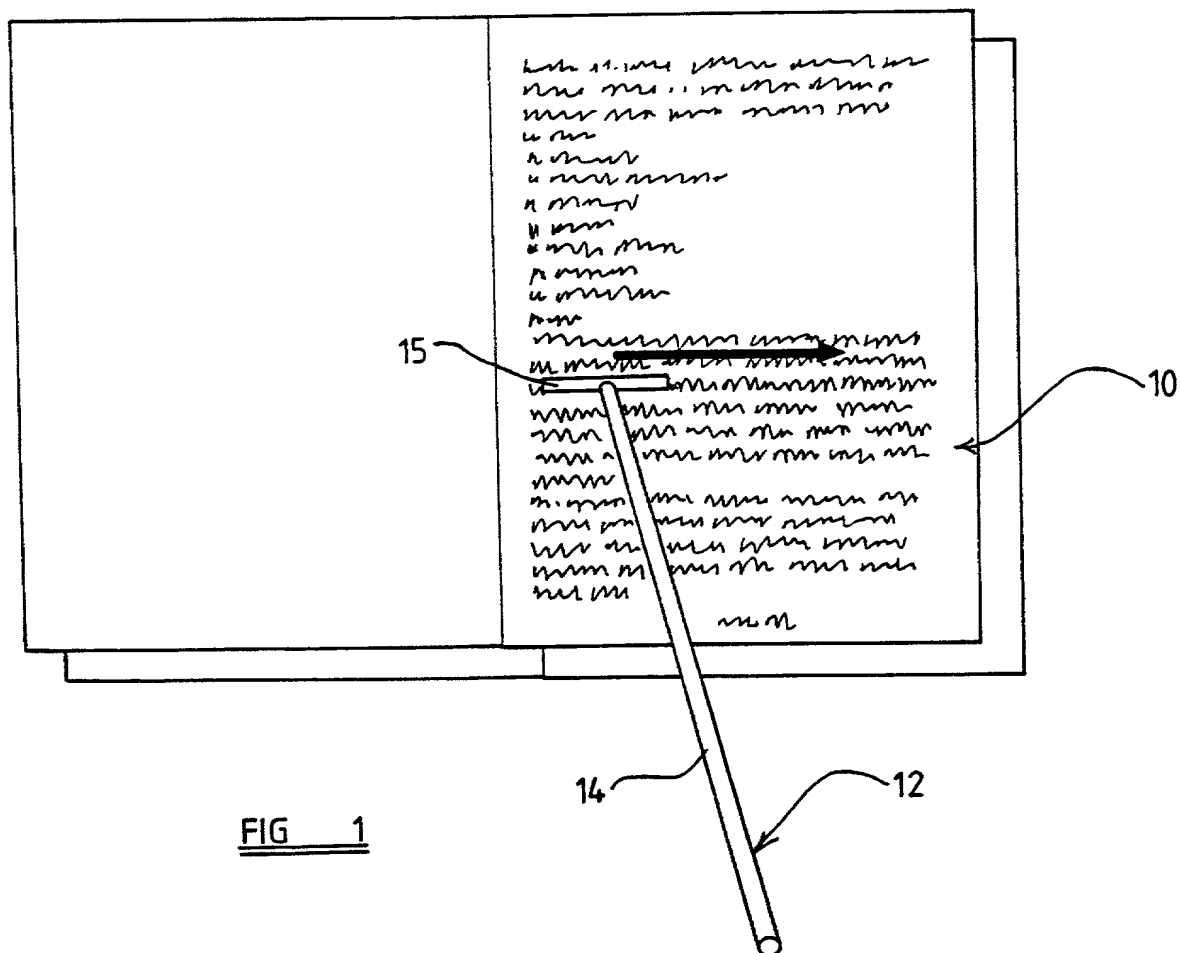 15
10
14
12
FIG 1